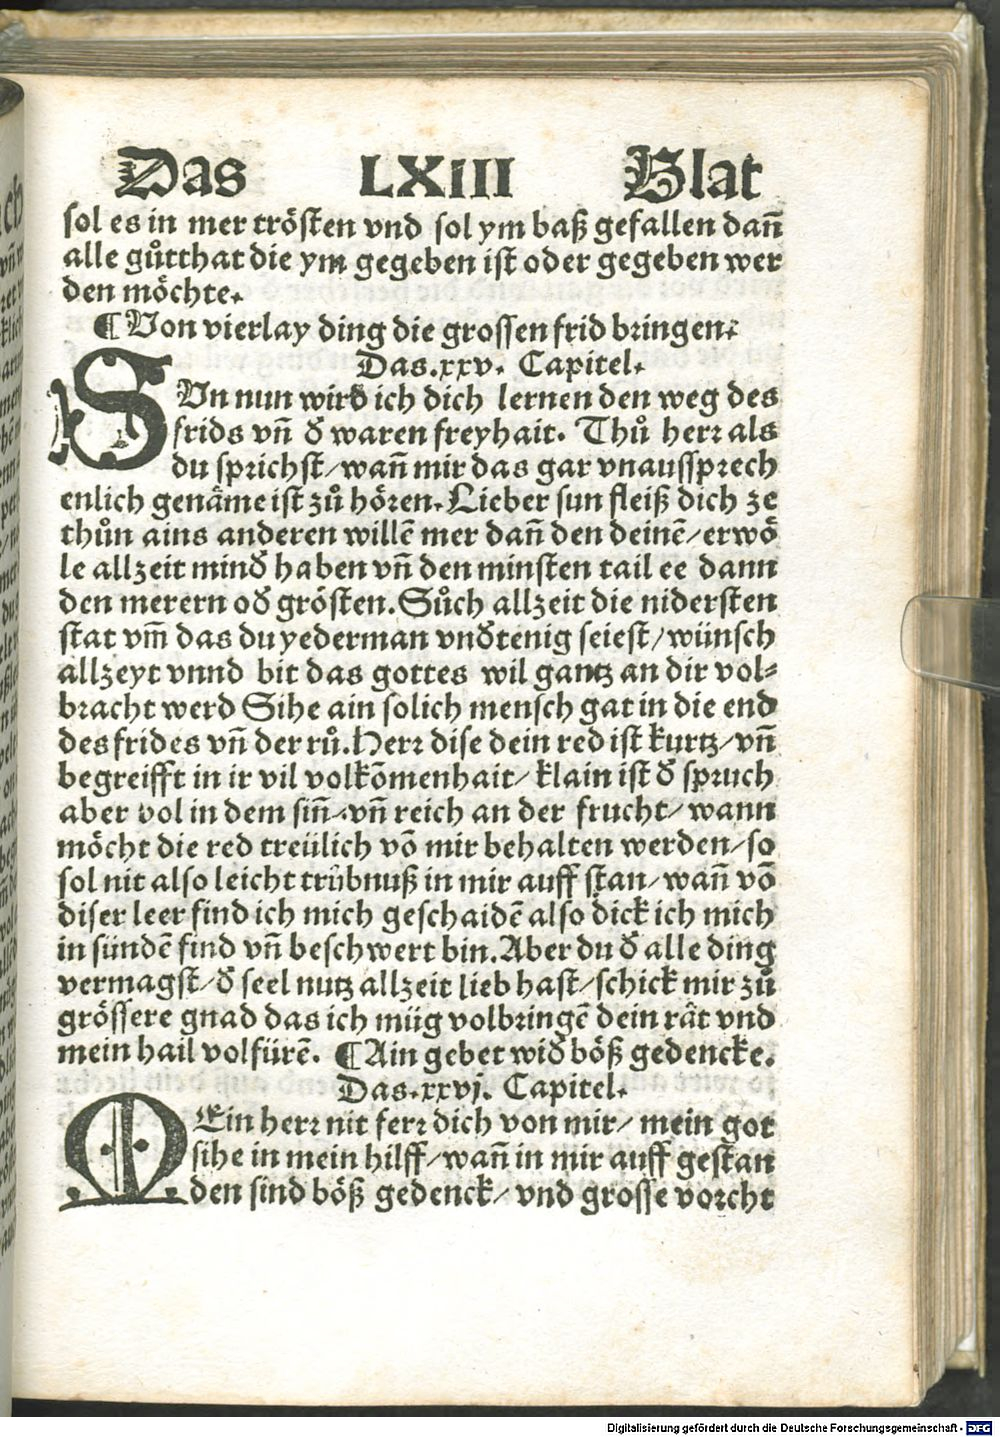 Das LXIII Blat
sol es in mer trösten vnd sol ym baß gefallen dañ
alle gůtthat die ym gegeben ist oder gegeben wer
den möchte.
¶ Von vierlay ding die grossen frid bringen.
Das .xxv. Capitel.
SVn nun wird ich dich lernen den weg des
frids vñ d̕ waren freyhait. Thů herr als
du sprichst/wañ mir das gar vnaussprech
enlich genäme ist zů hören. Lieber sun fleiß dich ze
thůn ains anderen willē mer dañ den deinē/erwö
le allzeit mind̕ haben vñ den minsten tail ee dann
den merern od̕ grösten. Sůch allzeit die nidersten
stat vm̄ das du yederman vnd̕tenig seiest/wünsch
allzeyt vnnd bit das gottes wil gantz an dir vol-
bracht werd Sihe ain solich mensch gat in die end
des frides vñ der rů. Herr dise dein red ist kurtz/vñ
begreifft in ir vil volkōmenhait/klain ist d̕ spruch
aber vol in dem siñ/vñ reich an der frucht/wann
möcht die red treülich vō mir behalten werden/so
sol nit also leicht trůbnuß in mir auff stan/wañ vō
diser leer find ich mich geschaidē also dick ich mich
in sündē find vñ beschwert bin. Aber du d̕ alle ding
vermagst/d̕ seel nutz allzeit lieb hast/schick mir zů
grössere gnad das ich müg volbringē dein rät vnd
mein hail volfürē. ¶ Ain gebet wid̕ böß gedencke.
Das .xxvj. Capitel.
MEin herr nit ferr dich von mir/ mein got
sihe in mein hilff/wañ in mir auff gestan
den sind böß gedenck/ vnd grosse vorcht
Digitalisierung gefördert durch die Deutsche Forschungsgemeinschaft - DFG